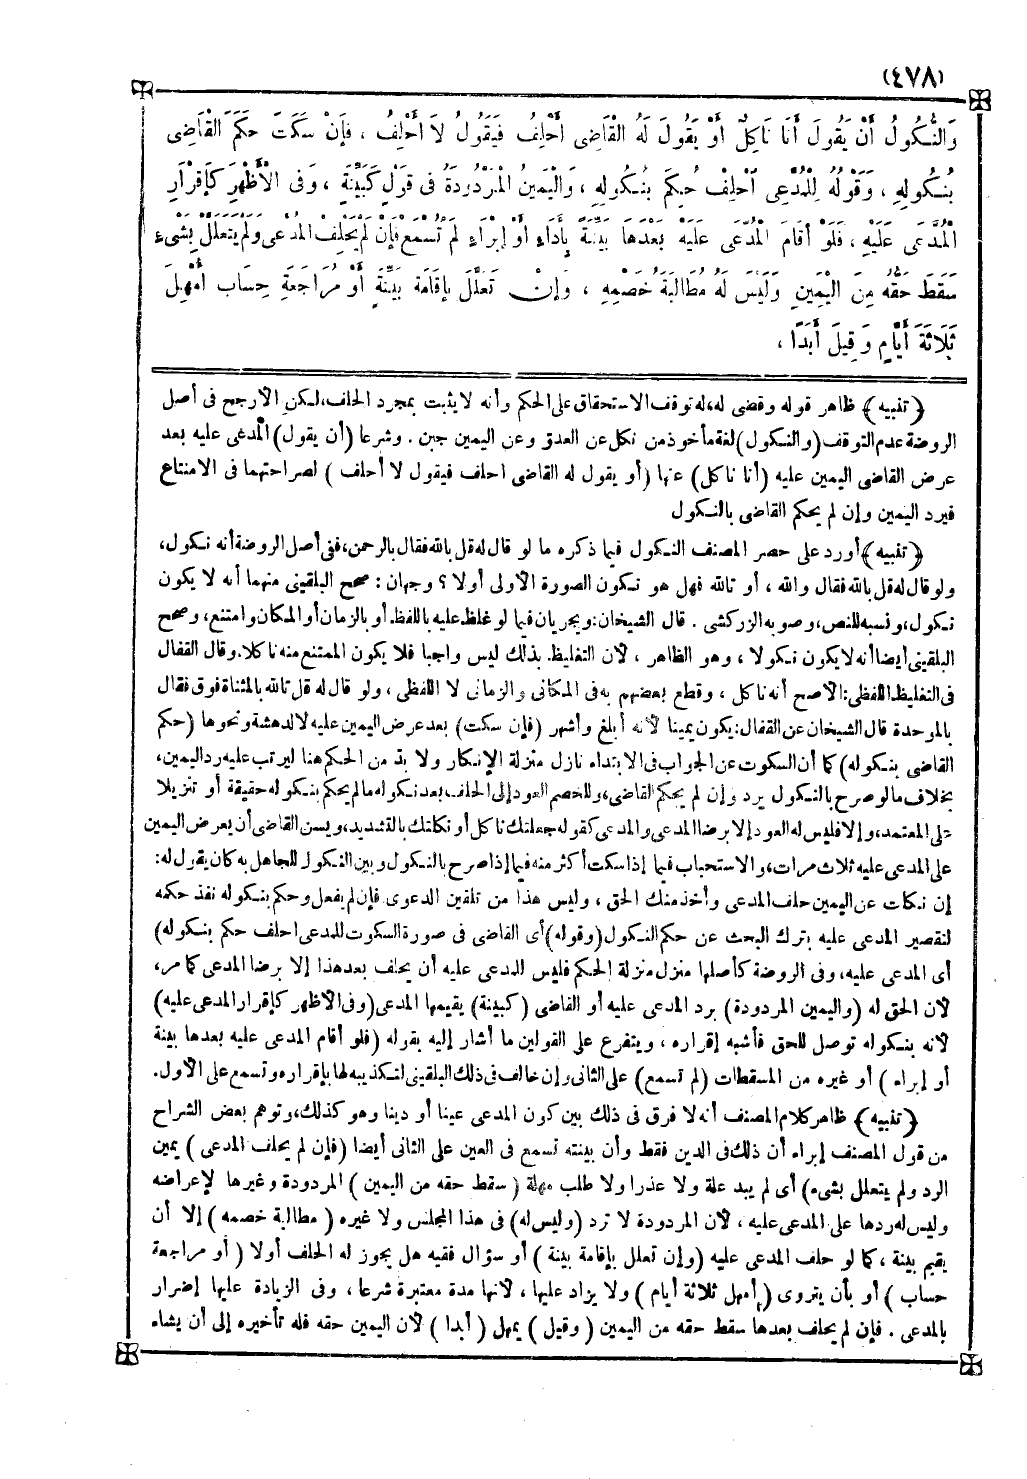 (٤٧٨)
وَالنُّكُولُ أَنْ يَقُولَ أَنَا نَاكِلٌ أَوْ يَقُولَ لَهُ الْقَاضِى أَحْلِفْ فَيَقُولُ لاَ أَحْلِفُ ، فَإِنْ سَكَتَ حَكَمَ الْقَاضِى
بِنُكُولِهِ ، وَقَوْلُهُ لِلْمُدَّعِى أَحْلِفْ حُكِمَ بِنُكُولِهِ ، وَالْيَمِينُ الْمَرْدُودَةُ فِى قَوْلٍ كَبَيِّنَةٍ ، وَفِى الْأَظْهَرِ كَإِقْرَارِ
الْمُدَّعَى عَلَيْهِ ، فَلَوْ أَقَامَ الْمُدَّعَى عَلَيْهِ بَعْدَهَا بَيِّنَةً بِأَدَاءٍ أَوْ إِبْرَاءٍ لَمْ تُسْمَعْ فَإِنْ لَمْ يَحْلِفِ الْمُدَّعِى وَلَمْ يَتَعَلَّلْ بِشَىْءٍ
سَقَطَ حَقُّهُ مِنَ الْيَمِينِ وَلَيْسَ لَهُ مُطَالَبَةُ خَصْمِهِ ، وَإِنْ تَعَلَّلَ بِإِقَامَةِ بَيِّنَةٍ أَوْ مُرَاجَعَةِ حِسَابٍ أُمْهِلَ
ثَلَاثَةَ أَيَّامٍ وَقِيلَ أَبَدًا ،
﴿تنبيه﴾ ظاهر قوله وقضى له، له توقف الاستحقاق على الحكم وأنه لا يثبت بمجرد الحلف، لكن الأرجح فى أصل
الروضة عدم التوقف (والنكول) لغة مأخوذ من نكل عن العدو وعن اليمين جبن . وشرعا (أن يقول) المدعى عليه بعد
عرض القاضى اليمين عليه (أنا ناكل) عنها (أو يقول له القاضى احلف فيقول لا أحلف ) لصراحتهما فى الامتناع
فيرد اليمين وإن لم يحكم القاضى بالنكول
﴿تنبيه﴾ أورد على حصر المصنف النكول فيما ذكره ما لو قال له قل بالله فقال بالرحمن، ففى أصل الروضة أنه نكول،
ولو قال له قل بالله فقال والله ، أو تالله فهل هو نكون الصورة الأولى أولا ؟ وجهان : صحح البلقينى منهما أنه لا يكون
نكول، ونسبه للنص، وصوبه الزركشى . قال الشيخان: ويجريان فيما لو غلظ عليه باللفظ أو بالزمان أو المكان وامتنع، وصحح
البلقينى أيضا أنه لا يكون نكولا ، وهو الظاهر ، لأن التغليظ بذلك ليس واجبا فلا يكون الممتنع منه ناكلا. وقال القفال
فى التغليظ اللفظى: الأصح أنه ناكل ، وقطع بعضهم به فى المكانى والزمانى لا اللفظى ، ولو قال له قل تالله بالمثناة فوق فقال
بالموحدة قال الشيخان عن القفال: يكون يمينا لأنه أبلغ وأشهر (فإن سكت) بعد عرض اليمين عليه لا لدهشة ونحوها (حكم
القاضى بنكوله) كما أن السكوت عن الجواب فى الابتداء نازل منزلة الإنكار ولا بد من الحكم هنا ليرتب عليه رد اليمين،
بخلاف ما لو صرح بالنكول يرد وإن لم يحكم القاضى، وللخصم العود إلى الحلف بعد نكوله ما لم يحكم بنكوله حقيقة أو تنزيلا
على المعتمد، وإلا فليس له العود إلا برضا المدعى والمدعى كقوله جعلتك ناكل أو نكلتك بالتشديد، ويسن القاضى أن يعرض اليمين
على المدعى عليه ثلاث مرات، والاستحباب فيما إذا سكت أكثر منه فيما إذا صرح بالنكول وبين النكول للجاهل به كان يقول له:
إن نكلت عن اليمين حلف المدعى وأخذ منك الحق ، وليس هذا من تلقين الدعوى فإن لم يفعل وحكم بنكوله نفذ حكمه
لتقصير المدعى عليه بترك البحث عن حكم النكول (وقوله) أى القاضى فى صورة السكوت للمدعى احلف حكم بنكوله)
أى المدعى عليه، وفى الروضة كأصلها منزل منزلة الحكم فليس للمدعى عليه أن يحلف بعد هذا إلا برضا المدعى كما مر،
لأن الحق له (واليمين المردودة) برد المدعى عليه أو القاضى (كبينة) يقيمها المدعى (وفى الأظهر كإقرار المدعى عليه)
لأنه بنكوله توصل للحق فأشبه إقراره ، ويتفرع على القولين ما أشار إليه بقوله (فلو أقام المدعى عليه بعدها بينة
أو إبراء ) أو غيره من المسقطات (لم تسمع) على الثانى وإن خالف فى ذلك البلقينى لتكذيبه لها بإقراره وتسمع على الأول.
﴿تنبيه﴾ ظاهر كلام المصنف أنه لا فرق فى ذلك بين كون المدعى عينا أو دينا وهو كذلك، وتوهم بعض الشراح
من قول المصنف إبراء أن ذلك فى الدين فقط وأن بينته تسمع فى العين على الثانى أيضا (فإن لم يحلف المدعى ) يمين
الرد ولم يتعلل بشىء) أى لم يبد علة ولا عذرا ولا طلب مهلة ( سقط حقه من اليمين ) المردودة وغيرها لإعراضه
وليس له ردها على المدعى عليه ، لأن المردودة لا ترد (وليس له) فى هذا المجلس ولا غيره ( مطالبة خصمه ) إلا أن
يقيم بينة ، كما لو حلف المدعى عليه (وإن تعلل بإقامة بينة ) أو سؤال فقيه هل يجوز له الحلف أولا ( أو مراجعة
حساب ) أو بأن يتروى (أمهل ثلاثة أيام ) ولا يزاد عليها ، لأنها مدة معتبرة شرعا ، وفى الزيادة عليها إضرار
بالمدعى . فإن لم يحلف بعدها سقط حقه من اليمين ( وقيل ) يمهل ( أبدا ) لأن اليمين حقه فله تأخيره إلى أن يشاء